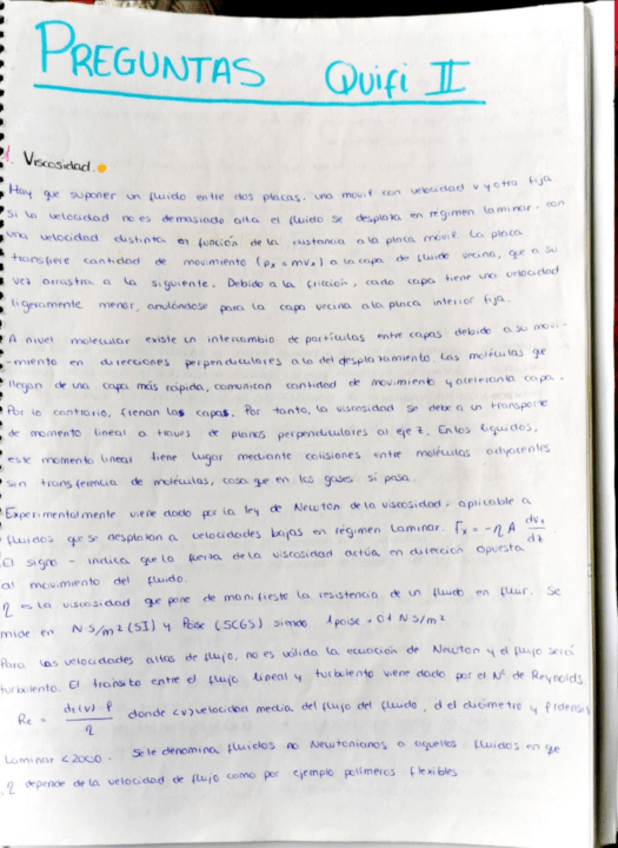 PREGUNTAS Quifi II
1. Viscosidad.
Hay que suponer un fluido entre dos placas, una movil con velocidad v y otra fija.
Si la velocidad no es demasiado alta el fluido se desplaza en régimen laminar, con
una velocidad distinta en función de la distancia a la placa móvil. La placa
transfiere cantidad de movimiento (px = mvx) a la capa de fluido vecina, que a su
vez arrastra a la siguiente. Debido a la fricción, cada capa tiene una velocidad
ligeramente menor, anulándose para la capa vecina a la placa inferior fija.
A nivel molecular existe un intercambio de partículas entre capas debido a su movi-
-miento en direcciones perpendiculares a la del desplazamiento. Las moléculas que
llegan de una capa más rápida, comunican cantidad de movimiento y aceleran la capa.
Por lo contrario, frenan las capas. Por tanto, la viscosidad se debe a un transporte
de momento lineal a traves de planos perpendiculares al eje z. En los líquidos,
este momento lineal tiene lugar mediante colisiones entre moléculas adyacentes
sin transferencia de moléculas, cosa que en los gases si pasa.
Experimentalmente viene dado por la ley de Newton de la viscosidad, aplicable a
fluidos que se desplazan a velocidades bajas en régimen laminar. Fx = -η A dvx/dz
El signo - indica que la fuerza de la viscosidad actúa en dirección opuesta
al movimiento del fluido.
η es la viscosidad que pone de manifiesto la resistencia de un fluido en fluir. Se
mide en N·s/m² (SI) y Poise (SCGS) siendo 1 poise = 0'1 N·s/m²
Para las velocidades altas de flujo, no es válida la ecuación de Newton y el flujo será
turbolento. El transito entre el flujo lineal y turbulento viene dado por el Nº de Reynolds.
Re = d·⟨v⟩·ρ/η donde <v> velocidad media del flujo del fluido, d el diámetro y ρ densi
Laminar < 2000. Se le denomina fluidos no Newtonianos a aquellos fluidos en que
η depende de la velocidad de flujo como por ejemplo polímeros flexibles